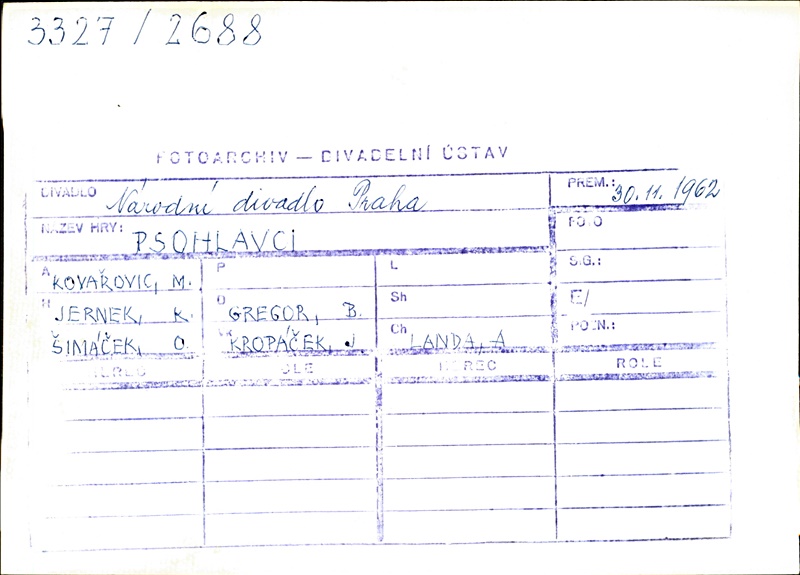 3327 / 2688
FOTOARCHIV — DIVADELNÍ ÚSTAV
DIVADLO Národní divadlo Praha PREM.: 30.11.1962
NÁZEV HRY: PSOHLAVCI FOTO
A KOVAŘOVIC, M. P L S.G.:
H JERNEK, K. O GREGOR, B. Sh E/
ŠIMÁČEK, O. KROPÁČEK, J Ch LANDA, A POZN.:
HEREC ROLE HEREC ROLE